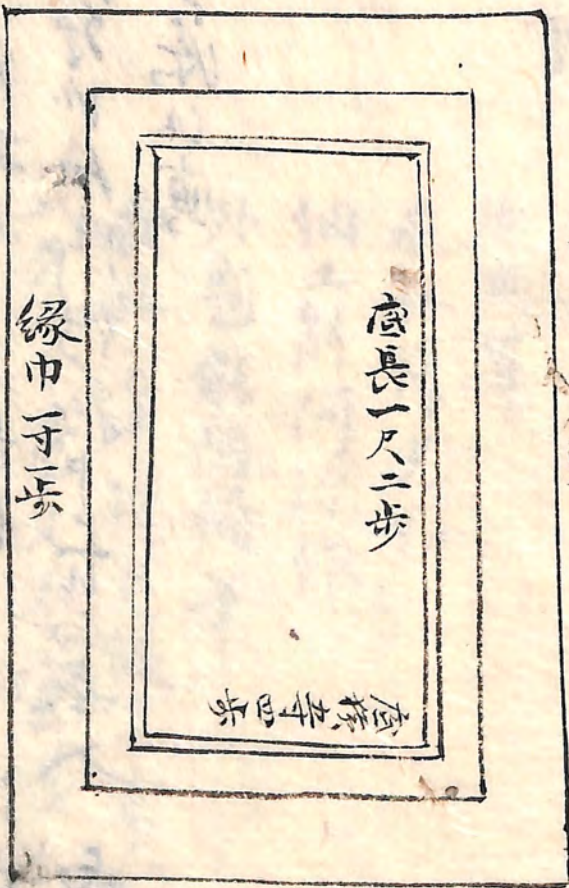 底長一尺二歩
底横五寸四歩
縁巾一寸一歩